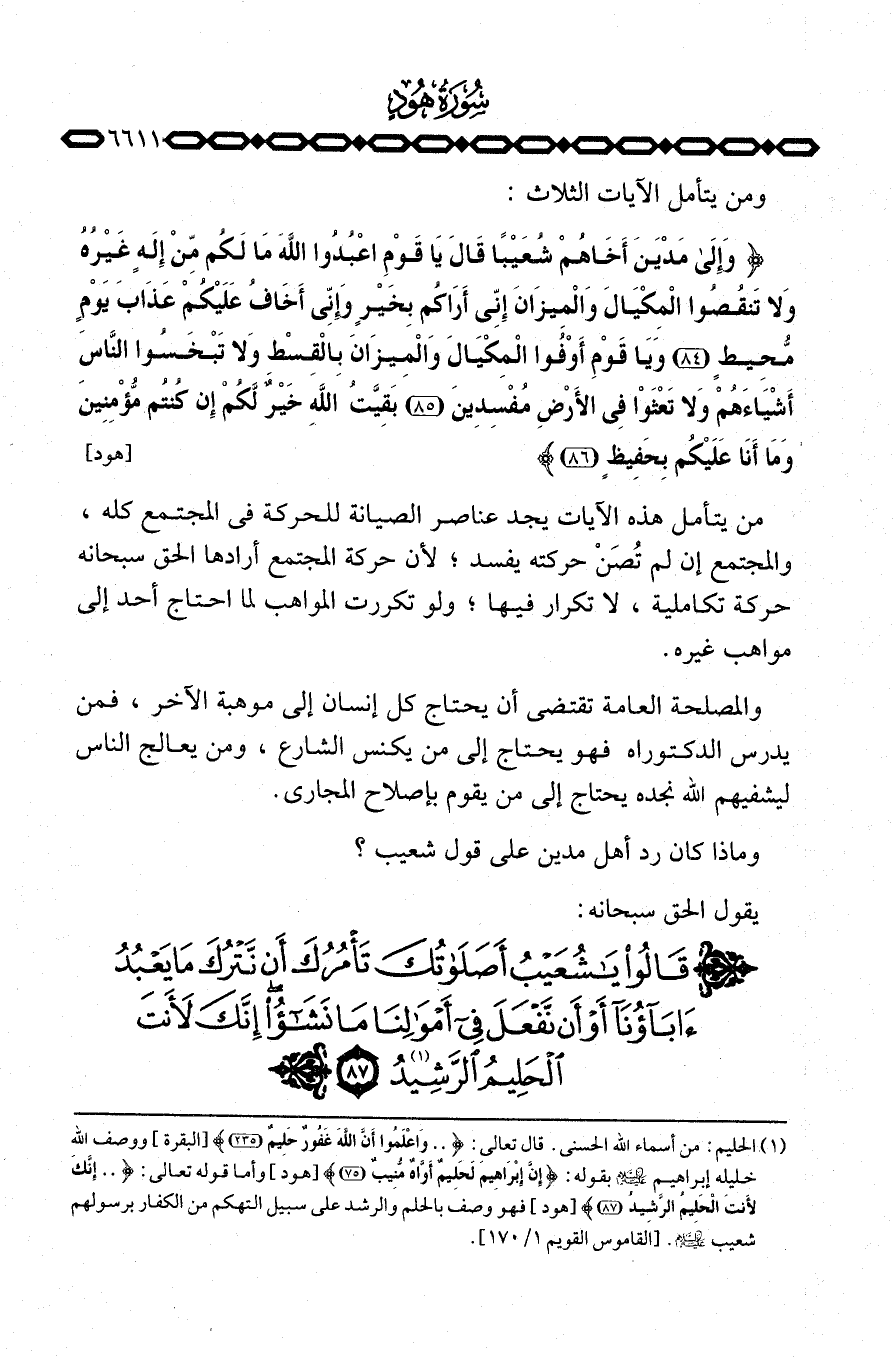 سُورَةُ هُودٍ
٦٦١١
ومن يتأمل الآيات الثلاث :
﴿ وَإِلَىٰ مَدْيَنَ أَخَاهُمْ شُعَيْبًا قَالَ يَا قَوْمِ اعْبُدُوا اللَّهَ مَا لَكُم مِّنْ إِلَهٍ غَيْرُهُ
وَلا تَنقُصُوا الْمِكْيَالَ وَالْمِيزَانَ إِنِّي أَرَاكُم بِخَيْرٍ وَإِنِّي أَخَافُ عَلَيْكُمْ عَذَابَ يَوْمٍ
مُّحِيطٍ (٨٤) وَيَا قَوْمِ أَوْفُوا الْمِكْيَالَ وَالْمِيزَانَ بِالْقِسْطِ وَلا تَبْخَسُوا النَّاسَ
أَشْيَاءَهُمْ وَلا تَعْثَوْا فِى الأَرْضِ مُفْسِدِينَ (٨٥) بَقِيَّتُ اللَّهِ خَيْرٌ لَّكُمْ إِن كُنتُم مُّؤْمِنِينَ
وَمَا أَنَا عَلَيْكُم بِحَفِيظٍ (٨٦) ﴾ [هود]
من يتأمل هذه الآيات يجد عناصر الصيانة للحركة فى المجتمع كله ،
والمجتمع إن لم تُصَنْ حركته يفسد ؛ لأن حركة المجتمع أرادها الحق سبحانه
حركة تكاملية ، لا تكرار فيها ؛ ولو تكررت المواهب لما احتاج أحد إلى
مواهب غيره.
والمصلحة العامة تقتضى أن يحتاج كل إنسان إلى موهبة الآخر ، فمن
يدرس الدكتوراه فهو يحتاج إلى من يكنس الشارع ، ومن يعالج الناس
ليشفيهم الله نجده يحتاج إلى من يقوم بإصلاح المجارى.
وماذا كان رد أهل مدين على قول شعيب ؟
يقول الحق سبحانه:
﴿ قَالُوا۟ يَـٰشُعَيْبُ أَصَلَوٰتُكَ تَأْمُرُكَ أَن نَّتْرُكَ مَا يَعْبُدُ
ءَابَآؤُنَآ أَوْ أَن نَّفْعَلَ فِىٓ أَمْوَٰلِنَا مَا نَشَـٰٓؤُا۟ ۖ إِنَّكَ لَأَنتَ
ٱلْحَلِيمُ (١) ٱلرَّشِيدُ (٨٧) ﴾
(١) الحليم: من أسماء الله الحسنى. قال تعالى: ﴿ .. وَاعْلَمُوا أَنَّ اللَّهَ غَفُورٌ حَلِيمٌ (٢٣٥) ﴾ [البقرة] ووصف الله
خليله إبراهيم ﷺ بقوله: ﴿ إِنَّ إِبْرَاهِيمَ لَحَلِيمٌ أَوَّاهٌ مُّنِيبٌ (٧٥) ﴾ [هود] وأما قوله تعالى: ﴿ .. إِنَّكَ
لأَنتَ الْحَلِيمُ الرَّشِيدُ (٨٧) ﴾ [هود] فهو وصف بالحلم والرشد على سبيل التهكم من الكفار برسولهم
شعيب ﷺ. [القاموس القويم ١/ ١٧٠].